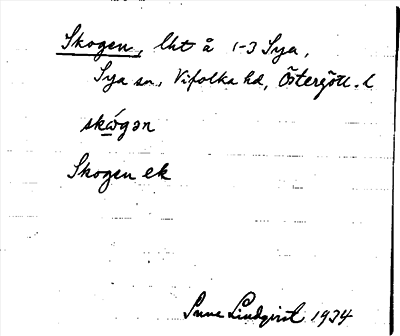 Skogen, lht å 1-3 Sya,
Sya sn, Vifolka hd, Östergötl. l
skógən
Skogen ek
Sune Lindqvist 1934